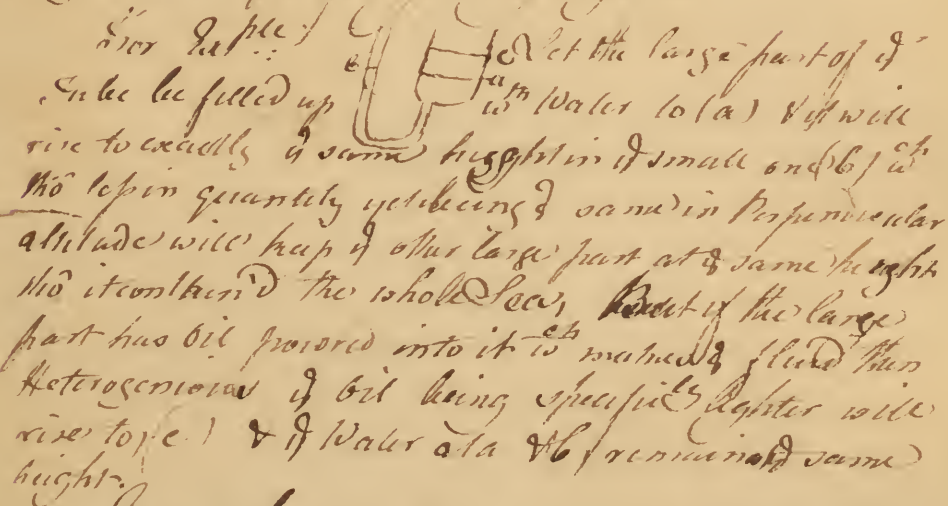 For Exple: Let the large part of ye
Tube be filled up wth Water to (a) & it will
rise to exactly ye same height in ye small one (b) wch
tho' less in quantity yet being ye same in Perpendicular
altitude will keep ye other large part at ye same height
tho' it contain'd the whole Sea, But if the large
part has Oil poured into it wch makes ye fluid then
Heterogenious ye Oil being specificly lighter will
rise to (c) & ye Water a & b remain ye same
height.